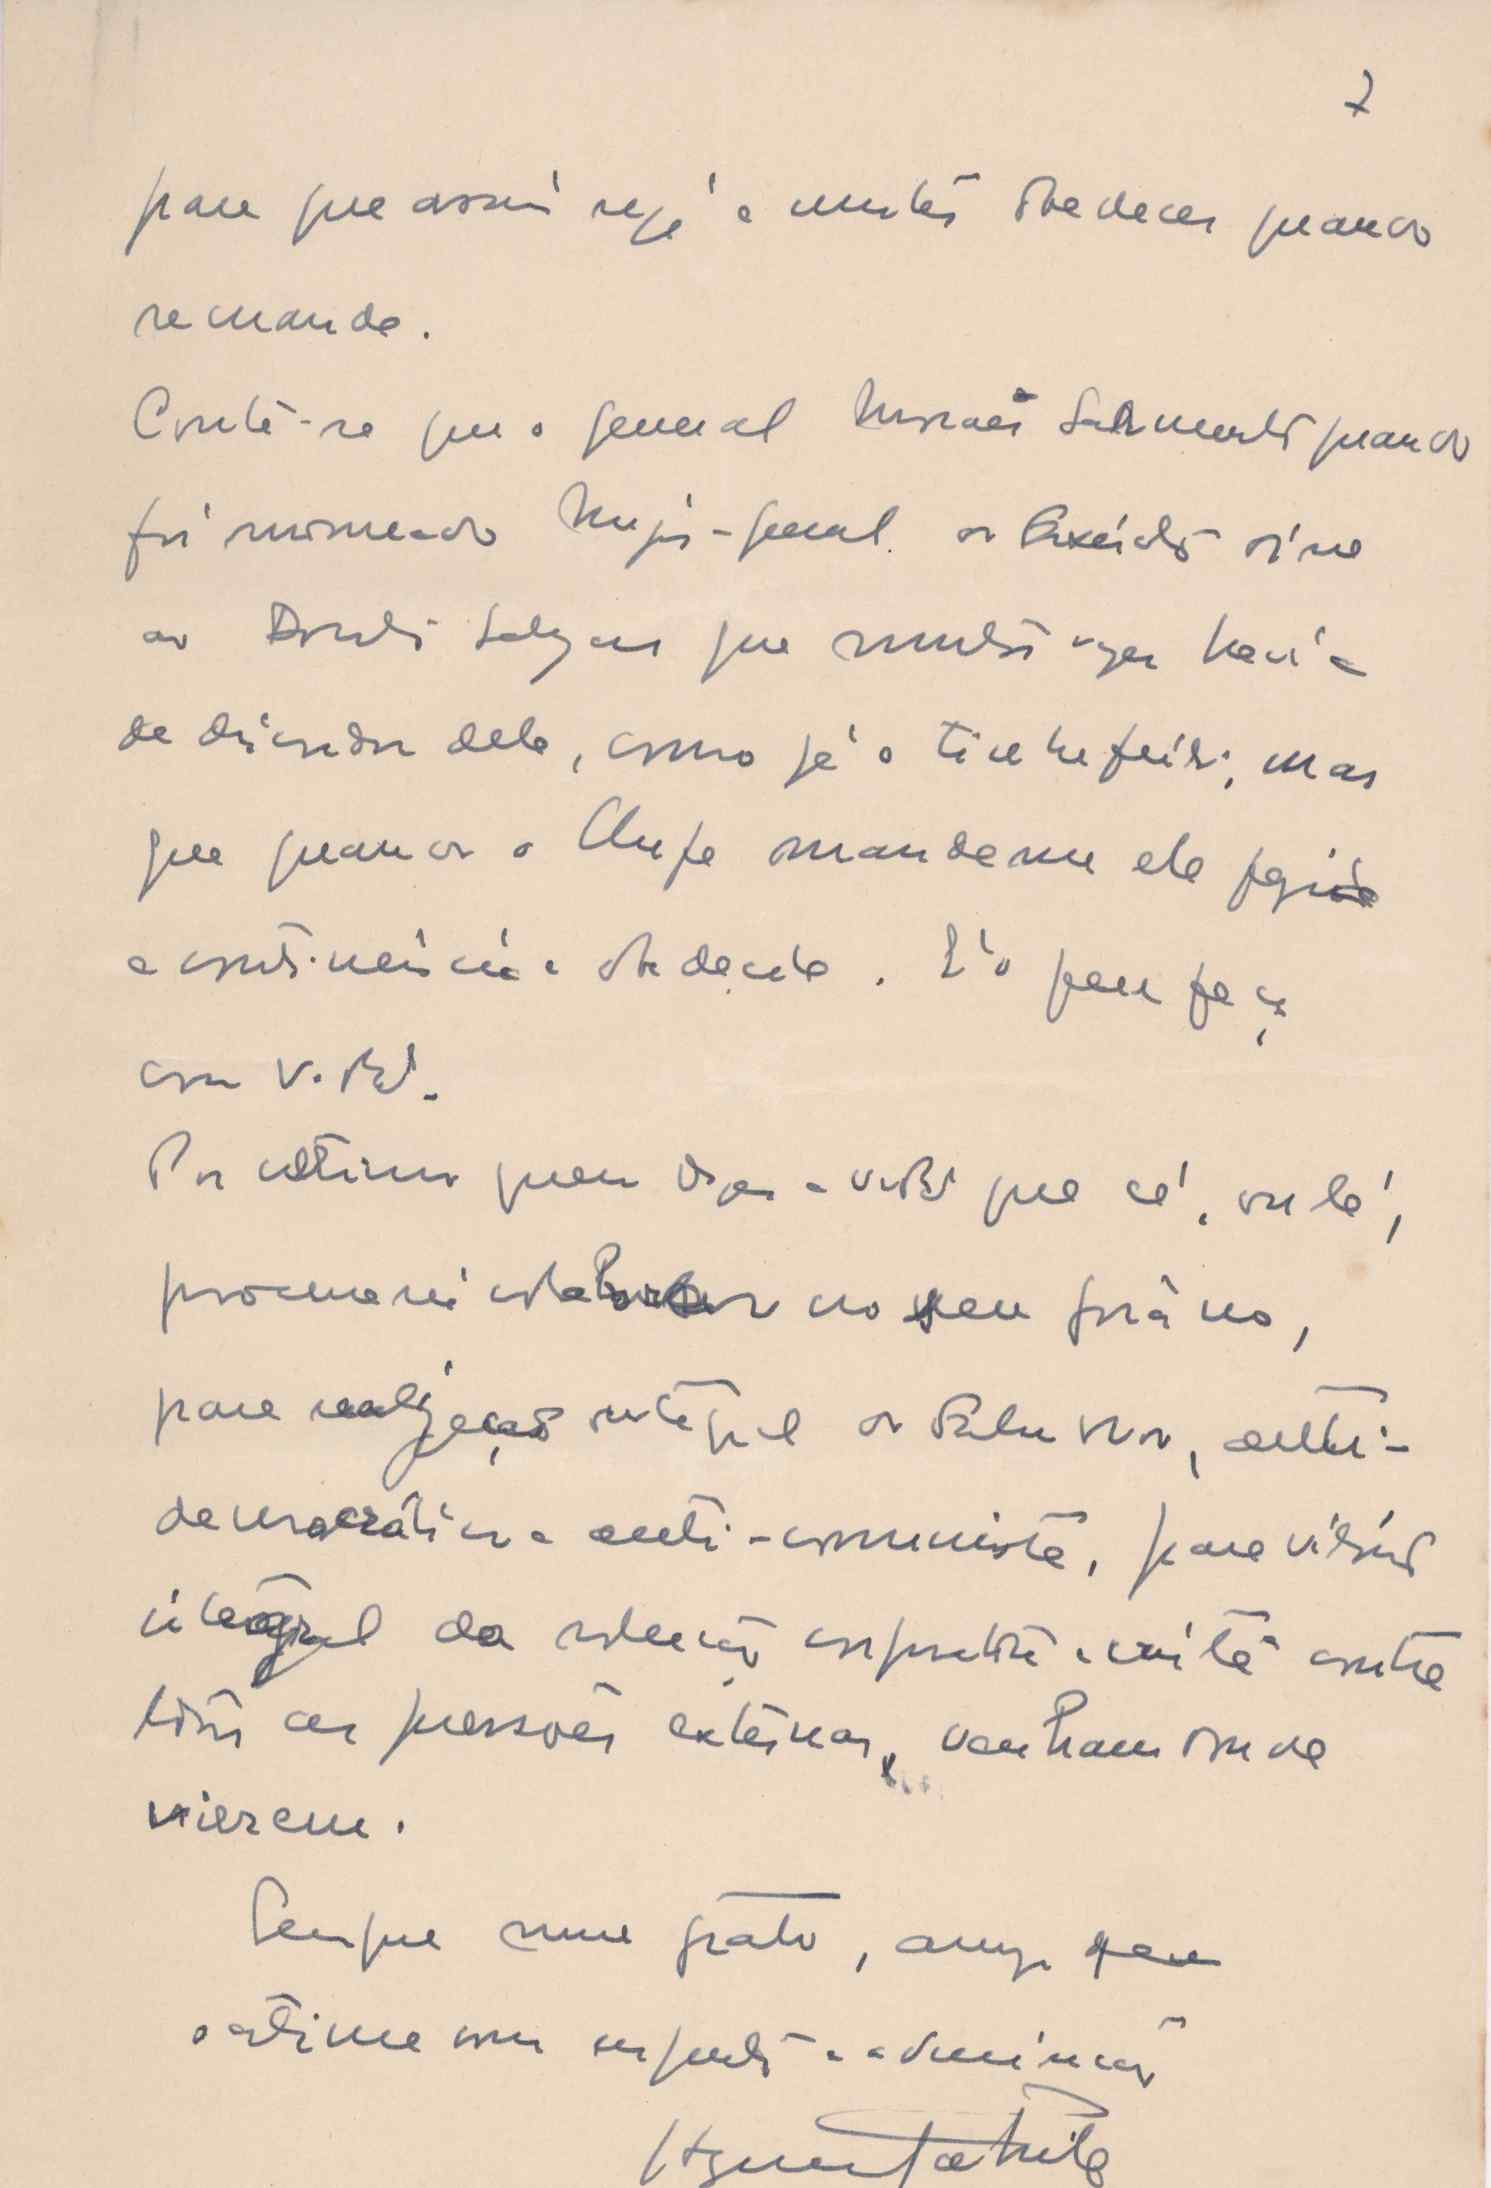 7
para que assim seja é muitas obedecer quando
se mande.
Conta-se que o general Moraes Sarmento quando
foi nomeado Major-general do Exército disse
ao Doutor Salazar que muitas vezes havia
de discordar dele, como já o tinha feito; mas
que quando o Chefe mandasse ele fazia
a continência e obedecia. É o que eu faço
com V. Exª.
Por último quero dizer a V. Exª que cá, ou lá,
procurarei colaborar no seu govêrno,
para realização integral do Estado Novo, anti-
democrático e anti-comunista, para vitória
integral da solução corporativa e cristã contra
todas as pressões externas, venham donde
vierem.
Sempre muito grato, amigo que
o estima com respeito e admiração